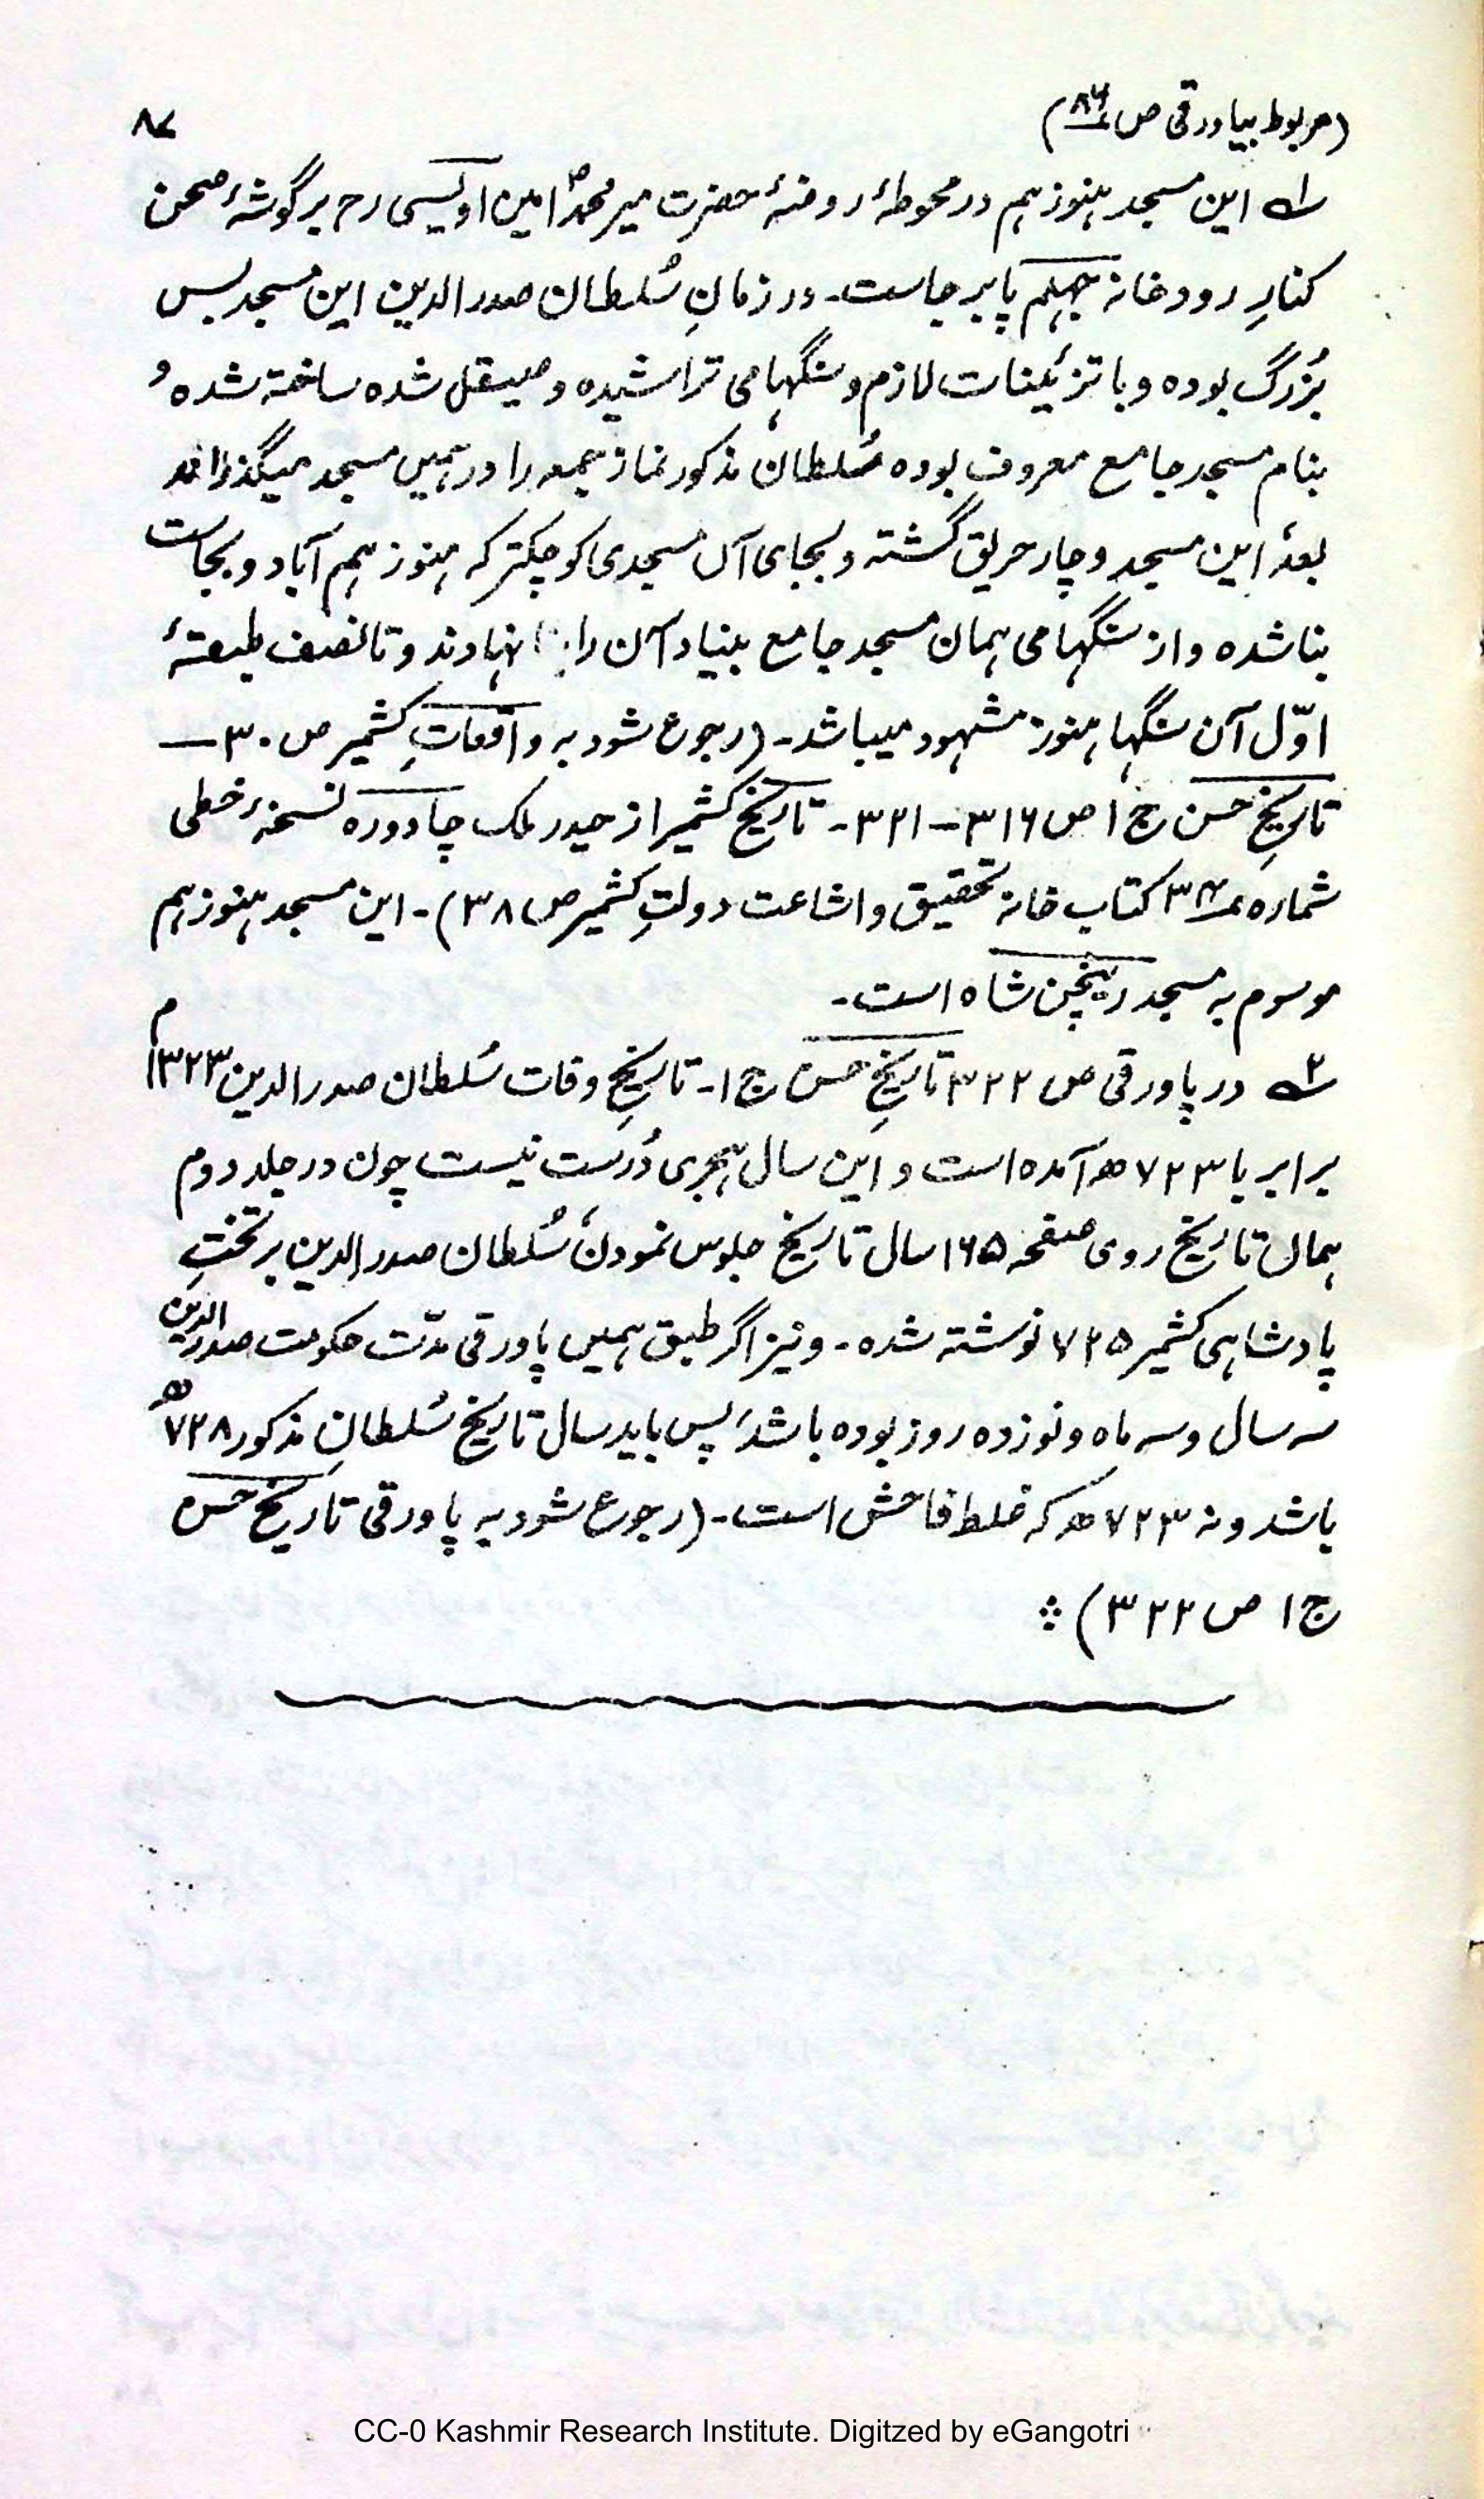 ۸۷
(مربوط بپاورقی ص ۸۶)
۱؎ این مسجد ہنوز ہم در محوطۂ روضۂ حضرت میر محمدؐ امین اویسی رح بر گوشۂ صحن
کنارِ رودخانہ جہلم پا بر جاست۔ در زمانِ سُلطان صدرالدین این مسجد بس
بُزرگ بودہ و با تزئینات لازم و سنگہامی تراشیدہ و صیقل شدہ ساختہ شدہ و
بنام مسجد جامع معروف بودہ سُلطان مذکور نماز جمعہ را در ہمیں مسجد میگذراند
بعدۂ این مسجد دچار حریق گشتہ و بجای آں مسجدی کوچکتر کہ ہنوز ہم آباد و بجاست
بنا شدہ و از سنگہامی ہمان مسجد جامع بنیاد آن را نہادند و تا نصف طبقۂ
اوّل آن سنگہا ہنوز مشہود میباشد۔ (رجوع شود بہ واقعاتِ کشمیر ص ۳۰ —
تاریخِ حسن ج ۱ ص ۳۱۶ – ۳۲۱۔ تاریخ کشمیر از حیدر ملک چادورہ نسخۂ خطی
شمارہ کتاب خانہ تحقیق و اشاعت دولتِ کشمیر ص ۳۸)۔ این مسجد ہنوز ہم
موسوم بہ مسجد رینچن شاہ است۔
۲؎ در پاورقی ص ۳۲۲ تاریخِ حسن ج ۱۔ تاریخِ وفات سُلطان صدرالدین ۱۳۲۳م
برابر با ۷۲۳ھ آمدہ است و این سال ہجری دُرست نیست چون در جلد دوم
ہماں تاریخ روی صفحہ ۱۶۵ سال تاریخ جلوس نمودن سُلطان صدرالدین بر تختِ
پادشاہی کشمیر ۷۲۵ نوشتہ شدہ۔ و نیز اگر طبق ہمیں پاورقی مدّت حکومت صدرالدین
سہ سال و سہ ماہ و نوزدہ روز بودہ باشد، پس باید سال تاریخ سُلطانِ مذکور ۷۲۸ھ
باشد و نہ ۷۲۳ھ کہ غلط فاحش است۔ (رجوع شود بہ پاورقی تاریخ حسن
ج ۱ ص ۳۲۲)
CC-0 Kashmir Research Institute. Digitzed by eGangotri